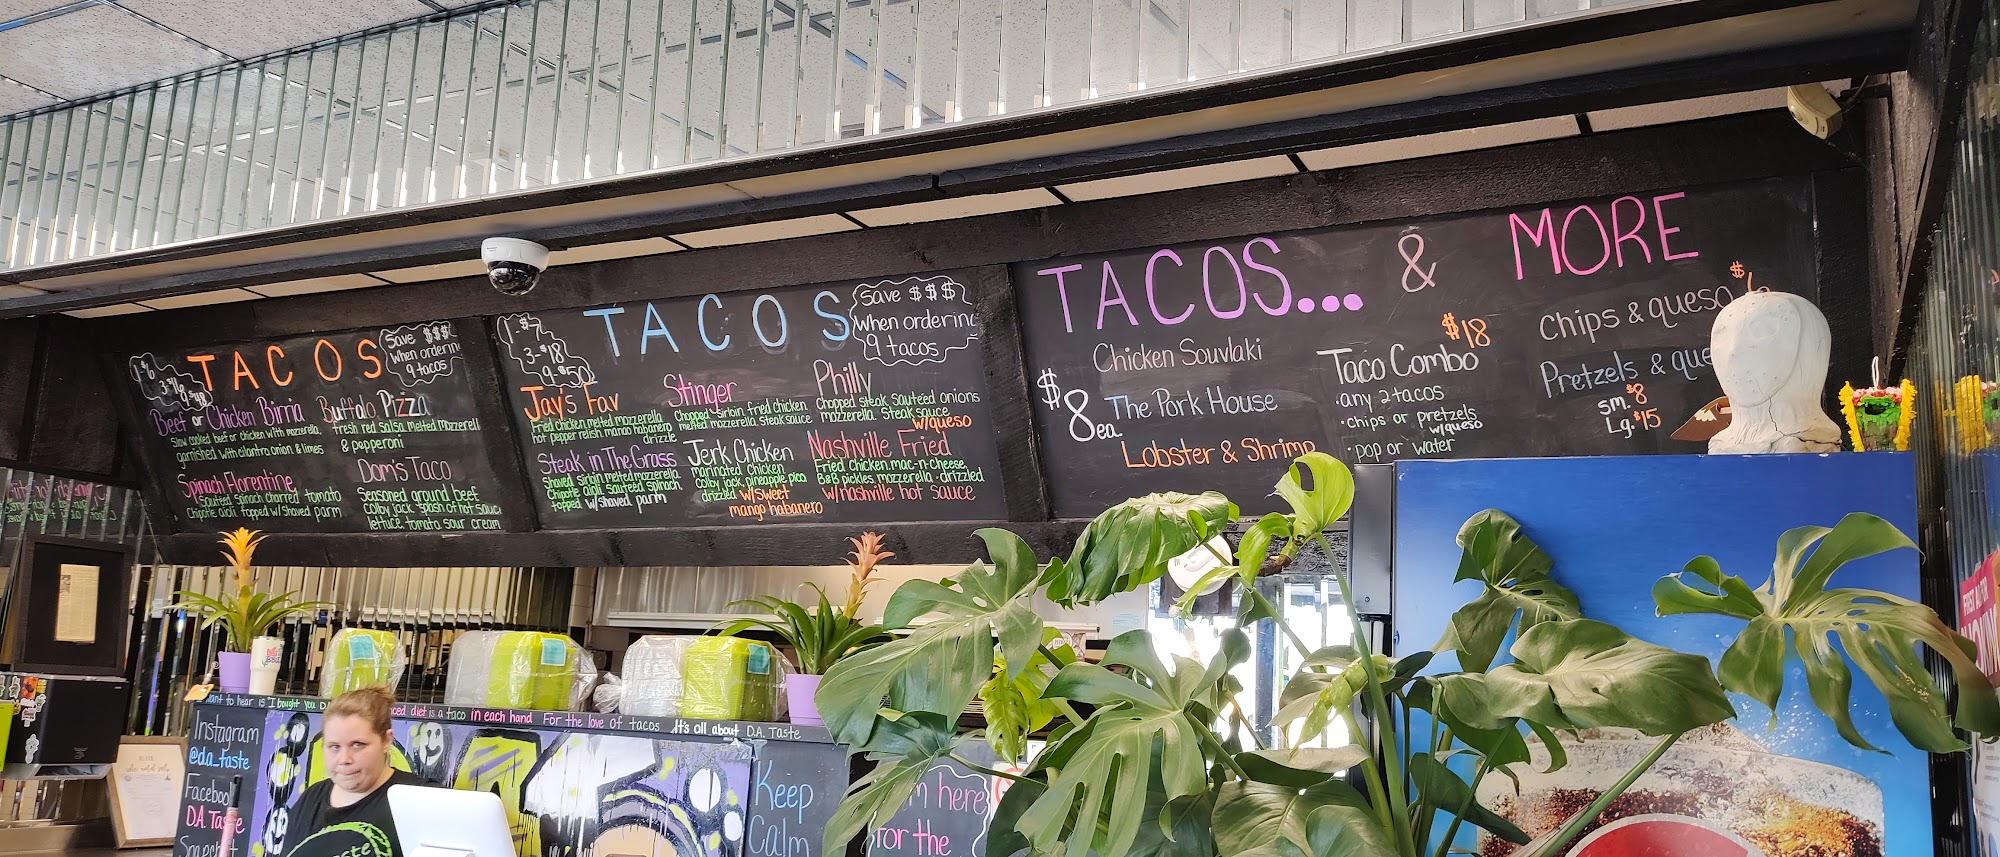 TACOS
Save $$$
when ordering
9 tacos
Beef or Chicken Birria
Slow cooked beef or chicken with mozzerella,
garnished with cilantro onion & limes
Spinach Florentine
Sauteed Spinach charred tomato
Chipotle aioli topped w/ Shaved parm
Buffalo Pizza
fresh red salsa melted mozzerell
& pepperoni
Dom's Taco
Seasoned ground beef
colby jack, splash of hot sauce
lettuce, tomato, sour cream
TACOS
1-$7
3-$18
9-$50
Save $$$
when ordering
9 tacos
Jay's Fav
Fried chicken, melted mozzerella
hot pepper relish, mango habanero
drizzle
Steak in The Grass
Shaved sirloin, melted mozzerella
Chipotle aioli, sauteed spinach,
topped w/ shaved parm
Stinger
Chopped sirloin, fried chicken
melted mozzerella, steak sauce
Jerk Chicken
marinated chicken
colby jack, pineapple pico
drizzled w/sweet
mango habanero
Philly
Chopped steak, sauteed onions
mozzarella, Steak sauce
w/queso
Nashville Fried
Fried chicken, mac-n-cheese
B&B pickles, mozzarella - drizzled
w/nashville hot sauce
TACOS... & MORE
$8 ea.
Chicken Souvlaki
The Pork House
Lobster & Shrimp
Taco Combo $18
• any 2 tacos
• chips or pretzels
w/queso
• pop or water
Chips & queso
Pretzels & que
Sm. $8
Lg. $15
want to hear is "I bought you
diet is a taco in each hand For the love of tacos It's all about D.A. Taste
Instagram
@da_taste
Facebook
D.A. Taste
Snapchat
Keep
Calm
here
for the